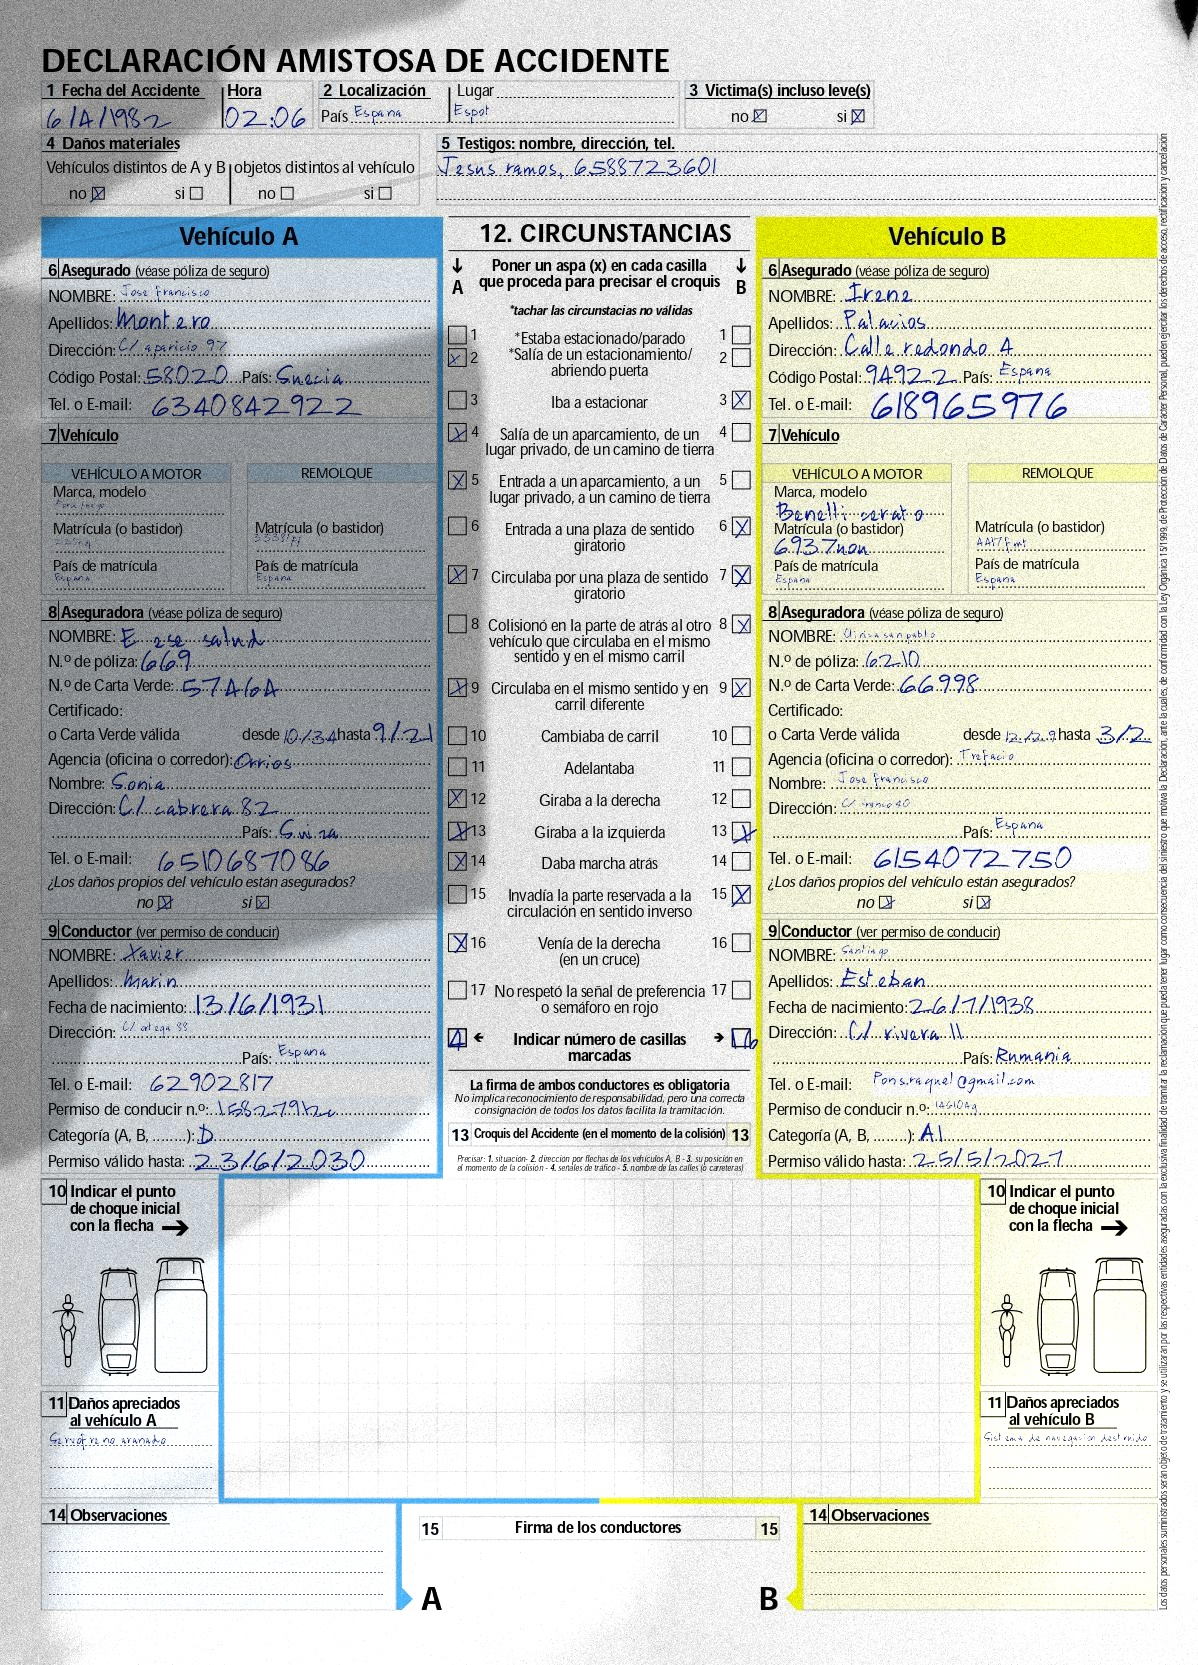 DECLARACIÓN AMISTOSA DE ACCIDENTE
1 Fecha del Accidente Hora 2 Localización Lugar 3 Victima(s) incluso leve(s)
6/4/1982 02:06 País Espana Espot no si
4 Daños materiales 5 Testigos: nombre, dirección, tel.
Vehículos distintos de A y B objetos distintos al vehículo Jesus ramos, 6588723601
no si no si
Vehículo A
6 Asegurado (véase póliza de seguro)
NOMBRE: Jose francisco
Apellidos: Montero
Dirección: C/ aparicio 97
Código Postal: 58020 País: Suecia
Tel. o E-mail: 6340842922
7 Vehículo
VEHÍCULO A MOTOR REMOLQUE
Marca, modelo
Matrícula (o bastidor) Matrícula (o bastidor)
País de matrícula País de matrícula
Espana Espana
8 Aseguradora (véase póliza de seguro)
NOMBRE: E ese salud
N.º de póliza: 669
N.º de Carta Verde: 57464
Certificado:
o Carta Verde válida desde 10/34 hasta 9/21
Agencia (oficina o corredor): Orrios
Nombre: Sonia
Dirección: C/ cabrera 82
País: Suiza
Tel. o E-mail: 6510687086
¿Los daños propios del vehículo están asegurados?
no si
9 Conductor (ver permiso de conducir)
NOMBRE: Xavier
Apellidos: Marin
Fecha de nacimiento: 13/6/1931
Dirección: C/ ortega 88
País: Espana
Tel. o E-mail: 62902817
Permiso de conducir n.º:
Categoría (A, B, ........): D
Permiso válido hasta: 23/6/2030
12. CIRCUNSTANCIAS
Poner un aspa (x) en cada casilla
A que proceda para precisar el croquis B
*tachar las circunstacias no válidas
1 *Estaba estacionado/parado 1
2 *Salía de un estacionamiento/ 2
abriendo puerta
3 Iba a estacionar 3
4 Salía de un aparcamiento, de un 4
lugar privado, de un camino de tierra
5 Entrada a un aparcamiento, a un 5
lugar privado, a un camino de tierra
6 Entrada a una plaza de sentido 6
giratorio
7 Circulaba por una plaza de sentido 7
giratorio
8 Colisionó en la parte de atrás al otro 8
vehículo que circulaba en el mismo
sentido y en el mismo carril
9 Circulaba en el mismo sentido y en 9
carril diferente
10 Cambiaba de carril 10
11 Adelantaba 11
12 Giraba a la derecha 12
13 Giraba a la izquierda 13
14 Daba marcha atrás 14
15 Invadía la parte reservada a la 15
circulación en sentido inverso
16 Venía de la derecha 16
(en un cruce)
17 No respetó la señal de preferencia 17
o semáforo en rojo
4 Indicar número de casillas 16
marcadas
La firma de ambos conductores es obligatoria
No implica reconocimiento de responsabilidad, pero una correcta
consignación de todos los datos facilita la tramitación.
13 Croquis del Accidente (en el momento de la colisión) 13
Precisar: 1. situación- 2. dirección por flechas de los vehículos A, B - 3. su posición en
el momento de la colisión - 4. señales de tráfico - 5. nombre de las calles (o carreteras)
Vehículo B
6 Asegurado (véase póliza de seguro)
NOMBRE: Irene
Apellidos: Palacios
Dirección: Calle redondo 4
Código Postal: 94922 País: Espana
Tel. o E-mail: 618965976
7 Vehículo
VEHÍCULO A MOTOR REMOLQUE
Marca, modelo
Benelli cerato
Matrícula (o bastidor) Matrícula (o bastidor)
6937non
País de matrícula País de matrícula
Espana Espana
8 Aseguradora (véase póliza de seguro)
NOMBRE: Clinica san pablo
N.º de póliza: 6210
N.º de Carta Verde: 66998
Certificado:
o Carta Verde válida desde 12/29 hasta 3/2
Agencia (oficina o corredor): Trefacio
Nombre: Jose francisco
Dirección:
País: Espana
Tel. o E-mail: 6154072750
¿Los daños propios del vehículo están asegurados?
no si
9 Conductor (ver permiso de conducir)
NOMBRE: Santiago
Apellidos: Esteban
Fecha de nacimiento: 26/7/1938
Dirección: C/ rivera 11
País: Rumania
Tel. o E-mail: Pons.raquel@gmail.com
Permiso de conducir n.º:
Categoría (A, B, ........): A1
Permiso válido hasta: 25/5/2027
10 Indicar el punto
de choque inicial
con la flecha
11 Daños apreciados
al vehículo A
Servofreno aranado
10 Indicar el punto
de choque inicial
con la flecha
11 Daños apreciados
al vehículo B
Sistema de navegacion destruido
14 Observaciones
15 Firma de los conductores 15
A B
14 Observaciones